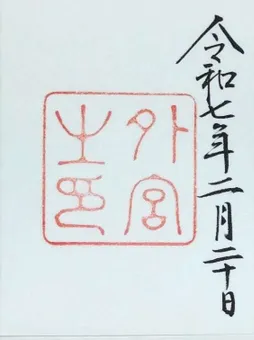 令和七年二月二十日
外宮
之印